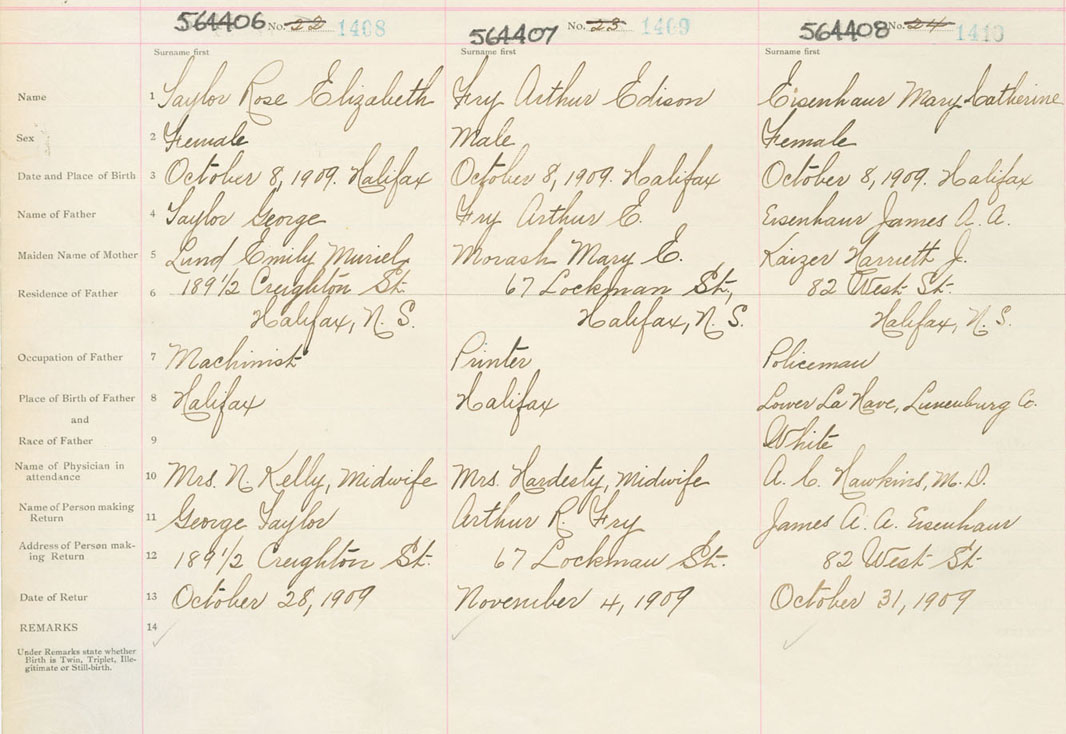 564406 No. 22 1408 564407 No. 23 1409 564408 No. 24 1410
Surname first Surname first Surname first
Name 1 Taylor Rose Elizabeth Fry Arthur Edison Eisenhaur Mary Catherine
Sex 2 Female Male Female
Date and Place of Birth 3 October 8, 1909. Halifax October 8, 1909. Halifax October 8, 1909. Halifax
Name of Father 4 Taylor George Fry Arthur E. Eisenhaur James A. A.
Maiden Name of Mother 5 Lund Emily Muriel Morash Mary E. Kaizer Harrieth J.
Residence of Father 6 189 1/2 Creighton St. 67 Lockman St., 82 West St.
Halifax, N. S. Halifax, N. S. Halifax, N. S.
Occupation of Father 7 Machinist Printer Policeman
Place of Birth of Father 8 Halifax Halifax Lower La Have, Lunenburg Co.
and
Race of Father 9 White
Name of Physician in
attendance 10 Mrs. N. Kelly, Midwife Mrs. Hardesty, Midwife A. C. Hawkins, M. D.
Name of Person making
Return 11 George Taylor Arthur R. Fry James A. A. Eisenhaur
Address of Person mak-
ing Return 12 189 1/2 Creighton St. 67 Lockman St. 82 West St.
Date of Retur 13 October 28, 1909 November 4, 1909 October 31, 1909
REMARKS 14
Under Remarks state whether
Birth is Twin, Triplet, Ille-
gitimate or Still-birth.